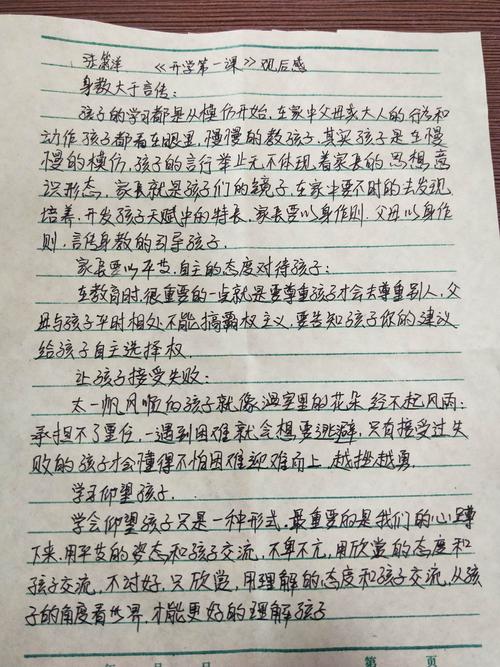 张 洋 《开学第一课》观后感
身教大于言传：
孩子的学习都是从模仿开始，在家中父母亲大人的行为和
动作孩子都看在眼里，慢慢的教孩子，其实孩子是在慢
慢的模仿，孩子的言行举止无不体现着家长的思想，意
识形态，家长就是孩子们的镜子，在家中要不时的去发现
培养，开发孩子天赋中的特长，家长要以身作则，父母以身作
则，言传身教的引导孩子。
家长要以平等、自主的态度对待孩子：
在教育时，很重要的一点就是要尊重孩子才会去尊重别人，父
母与孩子平时相处不能搞霸权主义，要告知孩子你的建议
给孩子自主选择权。
让孩子接受失败：
太一帆风顺的孩子就像温室里的花朵经不起风雨；
承担不了重任，一遇到困难就会想要逃避，只有接受过失
败的孩子才会懂得不怕困难迎难而上，越挫越勇。
学习仰望孩子.
学会仰望孩子只是一种形式，最重要的是我们的心蹲
下来，用平等的姿态和孩子交流，不卑不亢，用欣赏的态度和
孩子交流，不讨好，只欣赏，用理解的态度和孩子交流，从孩
子的角度看世界，才能更好的理解孩子
年 月 日 第 页